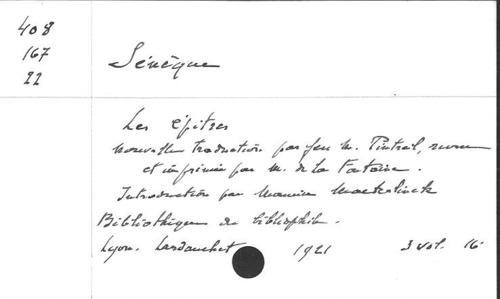 408
167
22
Sénèque
Les épitres
nouvelle traduction par feu M. Pintrel, revue
et imprimée par M. de la Fontaine.
Introduction par Maurice Maeterlinck
Bibliothèque du bibliophile.
Lyon. Lardanchet 1921 3 vol. 16